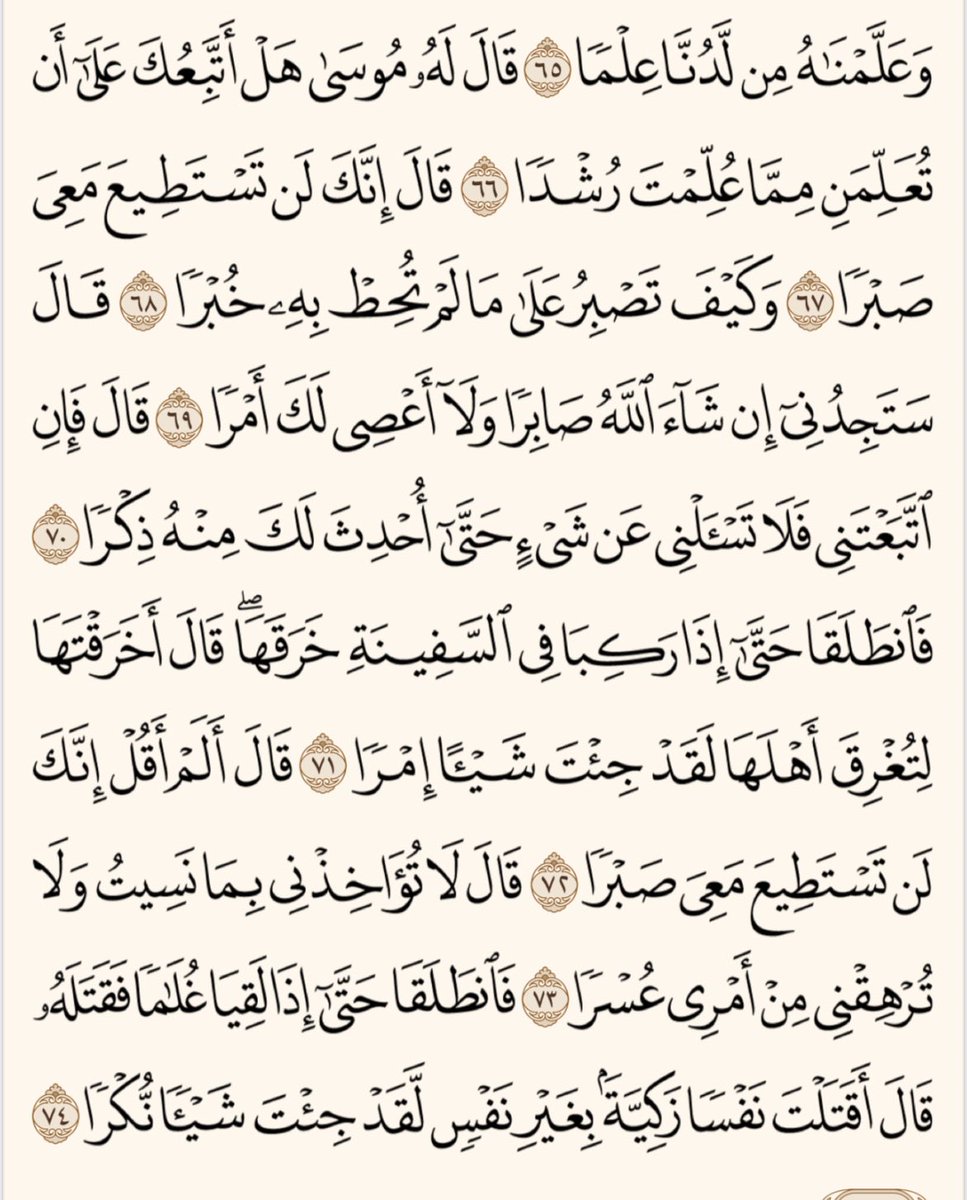 وَعَلَّمۡنَٰهُ مِن لَّدُنَّا عِلۡمٗا ٦٥ قَالَ لَهُۥ مُوسَىٰ هَلۡ أَتَّبِعُكَ عَلَىٰٓ أَن
تُعَلِّمَنِ مِمَّا عُلِّمۡتَ رُشۡدٗا ٦٦ قَالَ إِنَّكَ لَن تَسۡتَطِيعَ مَعِيَ
صَبۡرٗا ٦٧ وَكَيۡفَ تَصۡبِرُ عَلَىٰ مَا لَمۡ تُحِطۡ بِهِۦ خُبۡرٗا ٦٨ قَالَ
سَتَجِدُنِيٓ إِن شَآءَ ٱللَّهُ صَابِرٗا وَلَآ أَعۡصِي لَكَ أَمۡرٗا ٦٩ قَالَ فَإِنِ
ٱتَّبَعۡتَنِي فَلَا تَسۡـَٔلۡنِي عَن شَيۡءٍ حَتَّىٰٓ أُحۡدِثَ لَكَ مِنۡهُ ذِكۡرٗا ٧٠
فَٱنطَلَقَا حَتَّىٰٓ إِذَا رَكِبَا فِي ٱلسَّفِينَةِ خَرَقَهَاۖ قَالَ أَخَرَقۡتَهَا
لِتُغۡرِقَ أَهۡلَهَا لَقَدۡ جِئۡتَ شَيۡـًٔا إِمۡرٗا ٧١ قَالَ أَلَمۡ أَقُلۡ إِنَّكَ
لَن تَسۡتَطِيعَ مَعِيَ صَبۡرٗا ٧٢ قَالَ لَا تُؤَاخِذۡنِي بِمَا نَسِيتُ وَلَا
تُرۡهِقۡنِي مِنۡ أَمۡرِي عُسۡرٗا ٧٣ فَٱنطَلَقَا حَتَّىٰٓ إِذَا لَقِيَا غُلَٰمٗا فَقَتَلَهُۥ
قَالَ أَقَتَلۡتَ نَفۡسٗا زَكِيَّةَۢ بِغَيۡرِ نَفۡسٖ لَّقَدۡ جِئۡتَ شَيۡـٔٗا نُّكۡرٗا ٧٤